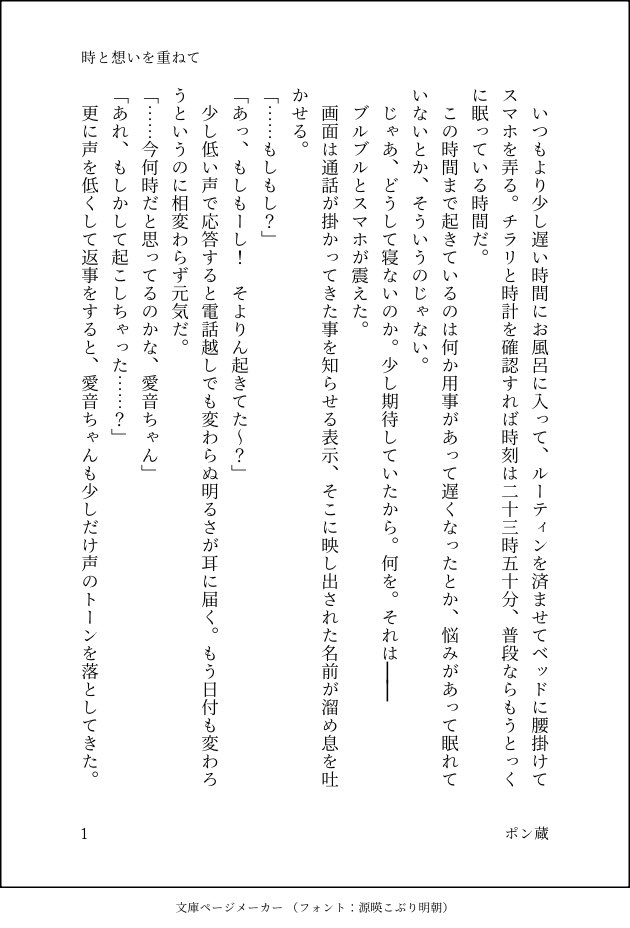 時と想いを重ねて
　いつもより少し遅い時間にお風呂に入って、ルーティンを済ませてベッドに腰掛けて
スマホを弄る。チラリと時計を確認すれば時刻は二十三時五十分、普段ならもうとっく
に眠っている時間だ。
　この時間まで起きているのは何か用事があって遅くなったとか、悩みがあって眠れて
いないとか、そういうのじゃない。
　じゃあ、どうして寝ないのか。少し期待していたから。何を。それは――
　ブルブルとスマホが震えた。
　画面は通話が掛かってきた事を知らせる表示、そこに映し出された名前が溜め息を吐
かせる。
「……もしもし？」
「あっ、もしもーし！　そよりん起きてた〜？」
　少し低い声で応答すると電話越しでも変わらぬ明るさが耳に届く。もう日付も変わろ
うというのに相変わらず元気だ。
「……今何時だと思ってるのかな、愛音ちゃん」
「あれ、もしかして起こしちゃった……？」
　更に声を低くして返事をすると、愛音ちゃんも少しだけ声のトーンを落としてきた。
1
ポン蔵
文庫ページメーカー （フォント：源暎こぶり明朝）